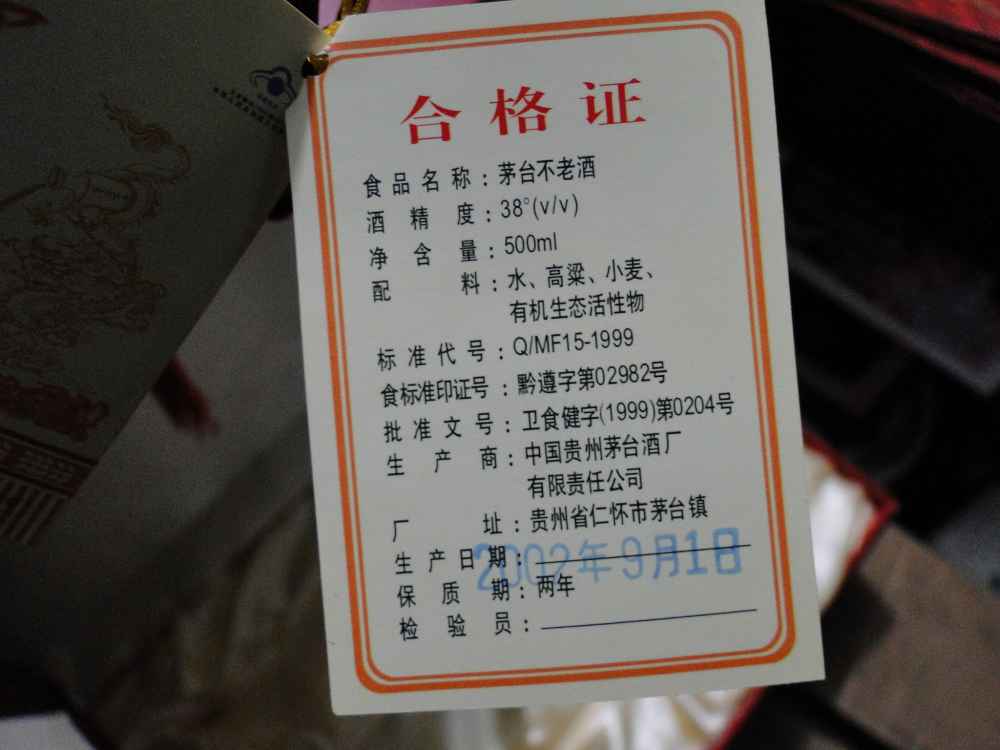 合格证
食品名称：茅台不老酒
酒精度：38°(v/v)
净含量：500ml
配料：水、高粱、小麦、
有机生态活性物
标准代号：Q/MF15-1999
食标准印证号：黔遵字第02982号
批准文号：卫食健字(1999)第0204号
生产商：中国贵州茅台酒厂
有限责任公司
厂址：贵州省仁怀市茅台镇
生产日期：2002年9月1日
保质期：两年
检验员：